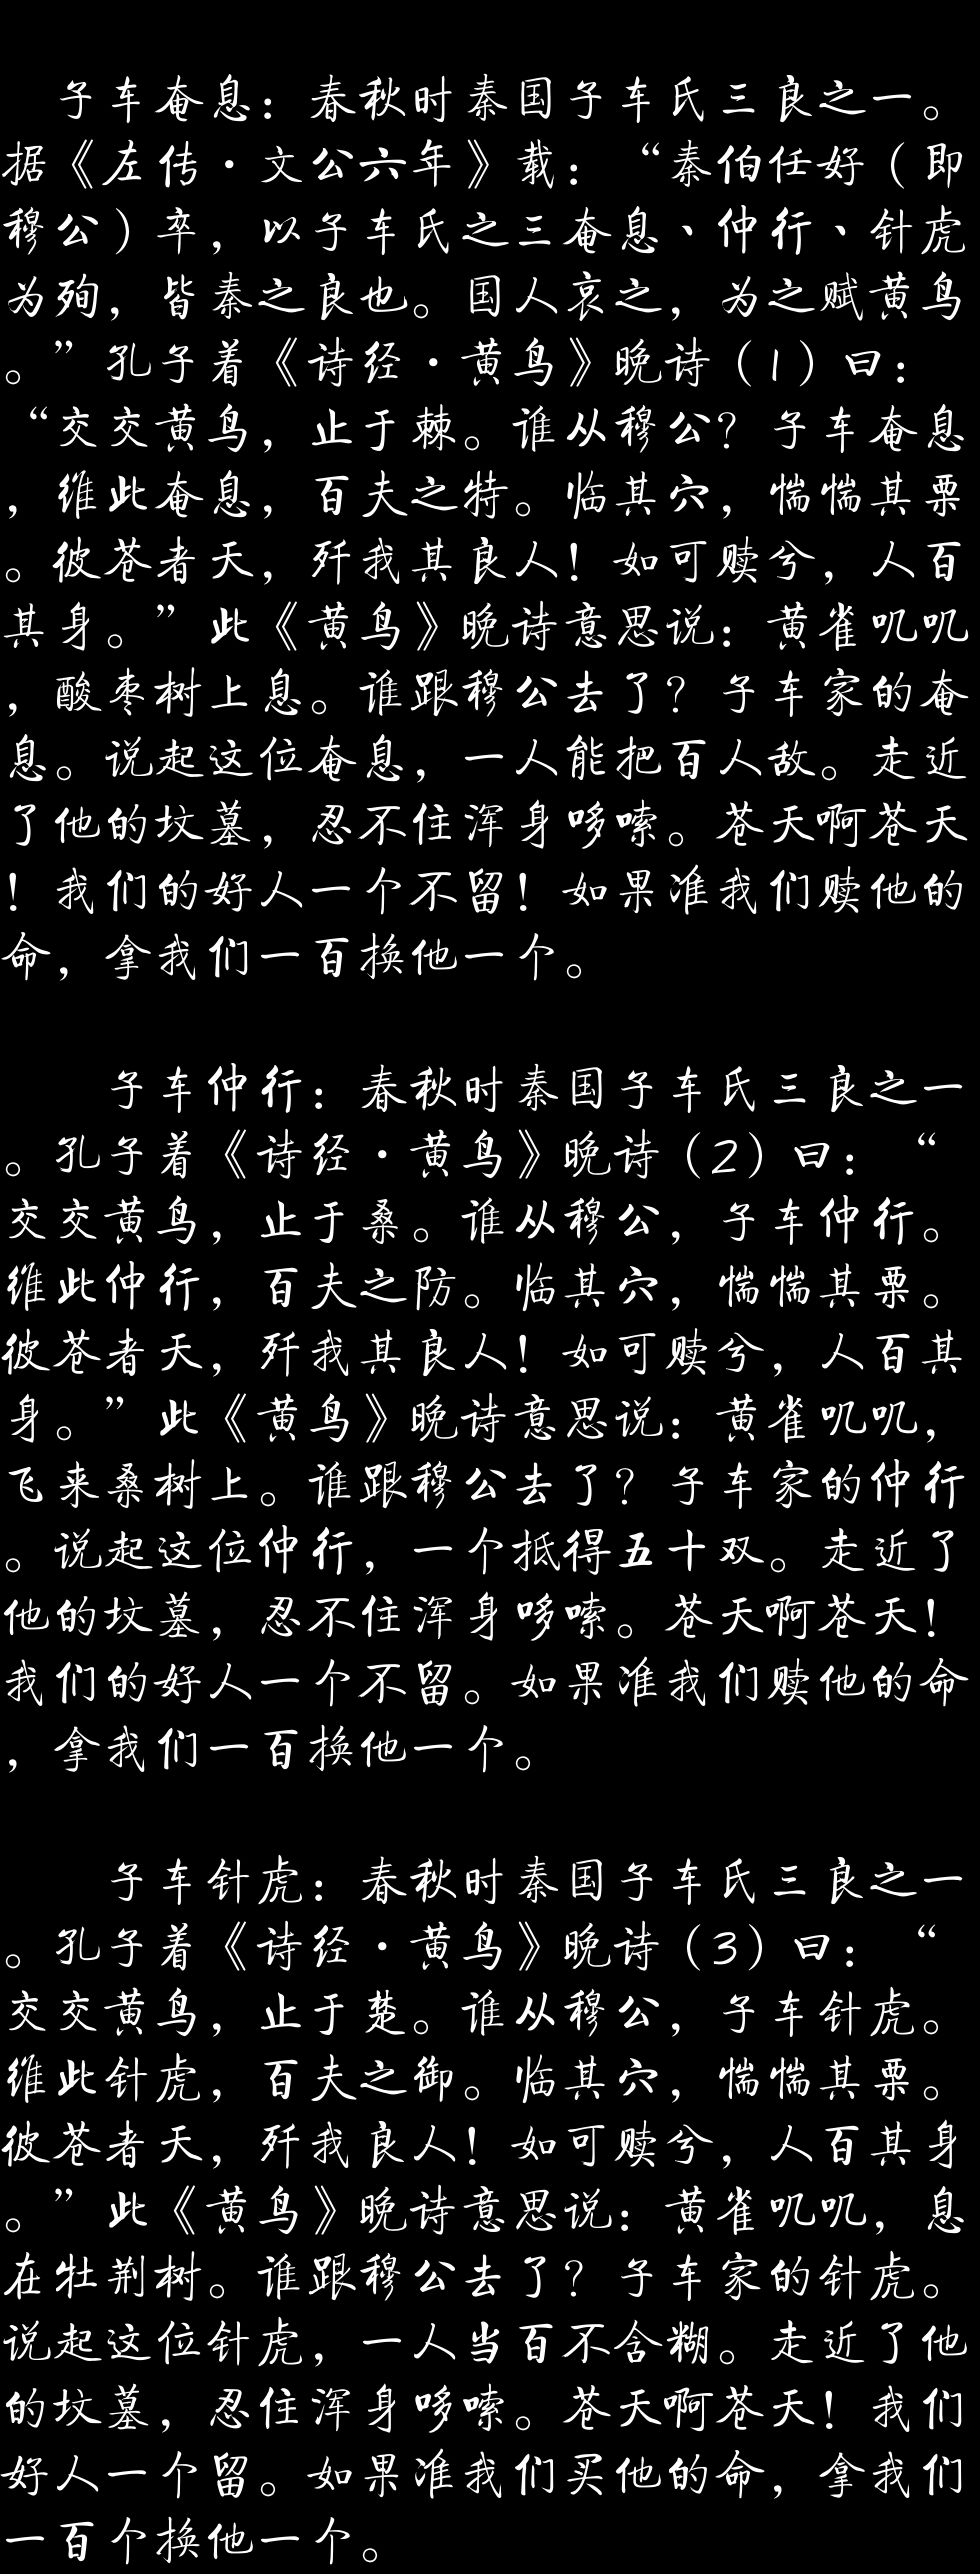 子车奄息：春秋时秦国子车氏三良之一。
据《左传·文公六年》载：“秦伯任好（即
穆公）卒，以子车氏之三奄息、仲行、针虎
为殉，皆秦之良也。国人哀之，为之赋黄鸟
。”孔子着《诗经·黄鸟》晚诗（1）曰：
“交交黄鸟，止于棘。谁从穆公？子车奄息
，维此奄息，百夫之特。临其穴，惴惴其栗
。彼苍者天，歼我其良人！如可赎兮，人百
其身。”此《黄鸟》晚诗意思说：黄雀叽叽
，酸枣树上息。谁跟穆公去了？子车家的奄
息。说起这位奄息，一人能把百人敌。走近
了他的坟墓，忍不住浑身哆嗦。苍天啊苍天
！我们的好人一个不留！如果准我们赎他的
命，拿我们一百换他一个。
子车仲行：春秋时秦国子车氏三良之一
。孔子着《诗经·黄鸟》晚诗（2）曰：“
交交黄鸟，止于桑。谁从穆公，子车仲行。
维此仲行，百夫之防。临其穴，惴惴其栗。
彼苍者天，歼我其良人！如可赎兮，人百其
身。”此《黄鸟》晚诗意思说：黄雀叽叽，
飞来桑树上。谁跟穆公去了？子车家的仲行
。说起这位仲行，一个抵得五十双。走近了
他的坟墓，忍不住浑身哆嗦。苍天啊苍天！
我们的好人一个不留。如果准我们赎他的命
，拿我们一百换他一个。
子车针虎：春秋时秦国子车氏三良之一
。孔子着《诗经·黄鸟》晚诗（3）曰：“
交交黄鸟，止于楚。谁从穆公，子车针虎。
维此针虎，百夫之御。临其穴，惴惴其栗。
彼苍者天，歼我良人！如可赎兮，人百其身
。”此《黄鸟》晚诗意思说：黄雀叽叽，息
在牡荆树。谁跟穆公去了？子车家的针虎。
说起这位针虎，一人当百不含糊。走近了他
的坟墓，忍住浑身哆嗦。苍天啊苍天！我们
好人一个留。如果准我们买他的命，拿我们
一百个换他一个。